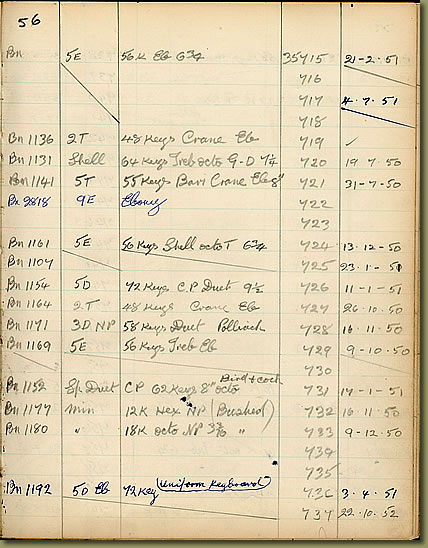 56
Bn 5E 56K Eb 6¾ 35715 21-2-51
716
717 4-7-51
718
Bn 1136 2T 48 Keys Crane Eb 719 ✓
Bn 1131 Shell 64 Keys Treb octo G-D 7¼ 720 19-7-50
Bn 1141 5T 55 Keys Bari Crane 8" 721 31-7-50
Bn 2818 9E Ebony 722
723
Bn 1161 5E 56 Keys Shell octo T 6¾ 724 13-12-50
Bn 1107 725 23-1-51
Bn 1154 5D 72 Keys CP Duet 9½ 726 11-1-51
Bn 1164 2T 48 Keys Crane Eb 727 26-10-50
Bn 1171 3D NP 58 Keys Duet 728 16-11-50
Bn 1169 5E 56 Keys Treb Eb 729 9-10-50
730
Bird + cock
Bn 1152 Sp Duet CP 62 Keys 8" octo 731 17-1-51
Bn 1177 min 12K Hex NP (Bushed) 732 16-11-50
Bn 1180 " 18K octo NP " 733 9-12-50
734
735
Bn 1192 5D Eb 72 Key (Uniform Keyboard) 736 3-4-51
737 22-10-52